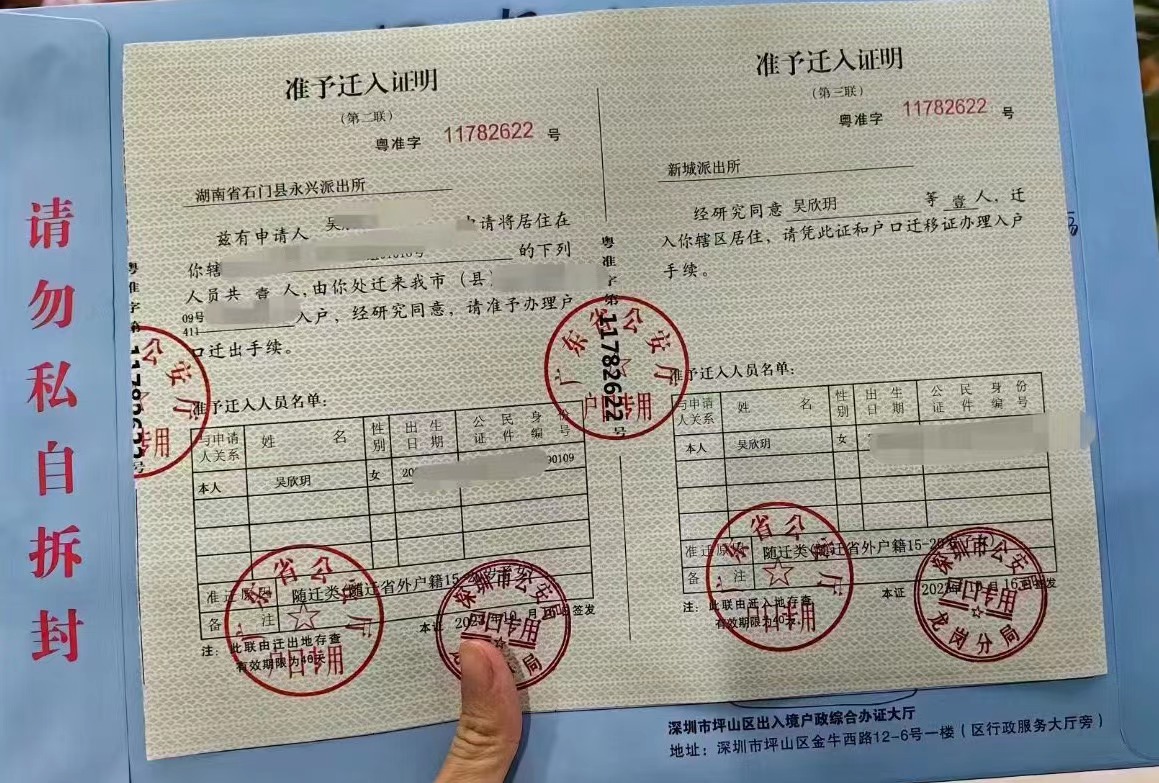 请勿私自拆封
准予迁入证明
（第二联）
粤准字 11782622 号
湖南省石门县永兴派出所
兹有申请人 吴 申请将居住在
你辖 的下列
人员共 壹 人,由你处迁来我市（县）
09号
411 入户，经研究同意，请准予办理户
口迁出手续。
准予迁入人员名单：
与申请人关系 姓名 性别 出生日期 公民身份证件编号
本人 吴欣玥 女 20 90109
准迁原因 随迁类(随迁省外户籍15-2
备注
本证 2023年10月16日签发
注：此联由迁出地存查
有效期限为40天
广东省公安厅
户口专用
深圳市公安局
户口专用
粤准字第11782622号
广东省公安厅
户口专用
准予迁入证明
（第三联）
粤准字 11782622 号
新城派出所
经研究同意 吴欣玥 等 壹 人，迁
入你辖区居住，请凭此证和户口迁移证办理入户
手续。
准予迁入人员名单：
与申请人关系 姓名 性别 出生日期 公民身份证件编号
本人 吴欣玥 女
准迁原因 随迁类(随迁省外户籍15-2
备注
本证 2023年10月16日签发
注：此联由迁入地存查
有效期限为40天
广东省公安厅
户口专用
深圳市公安局
户口专用
龙岗分局
深圳市坪山区出入境户政综合办证大厅
地址：深圳市坪山区金牛西路12-6号一楼（区行政服务大厅旁）